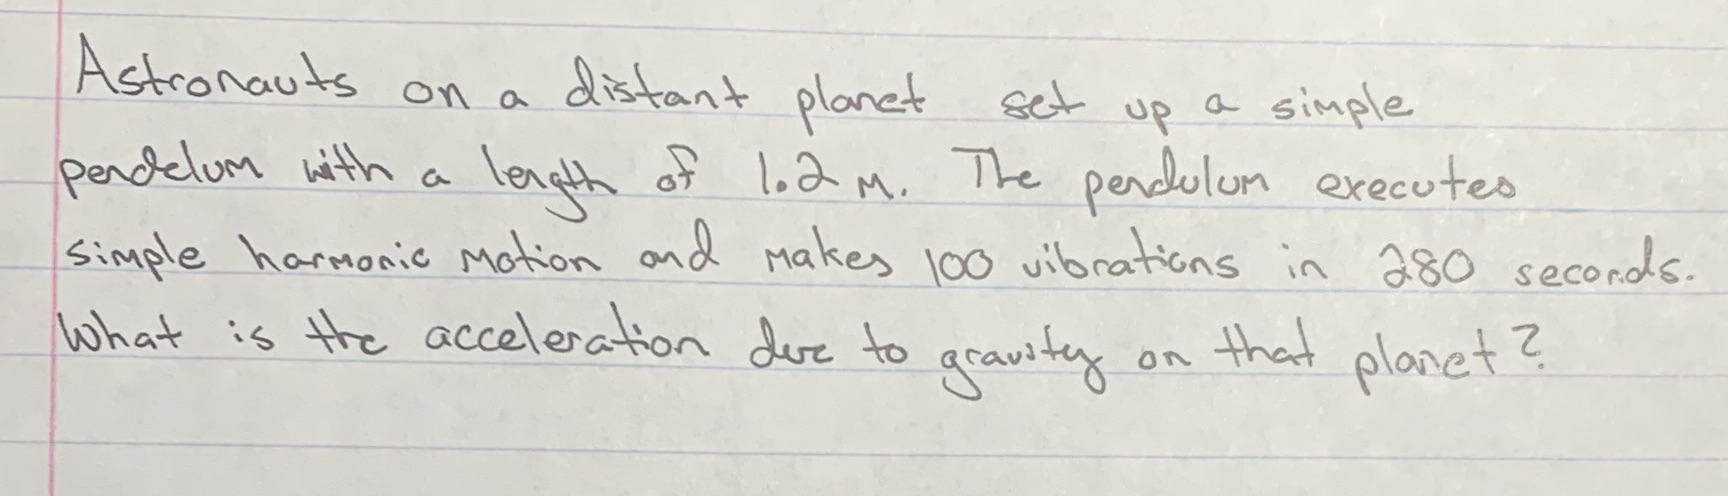 Astronauts on a distant planet set up a simple
pendelum with a length of 1.2 m. The pendulum executes
simple harmonic motion and makes 100 vibrations in 280 seconds.
What is the acceleration due to gravity on that planet?